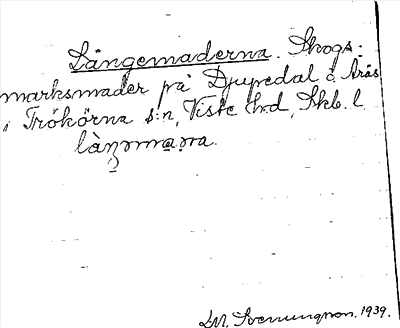 Långemaderna. Skogs-
marksmader på Djupedal å Årås
i Trökörna s:n, Viste hd, Skb. l
S. M. Svenungson. 1939.